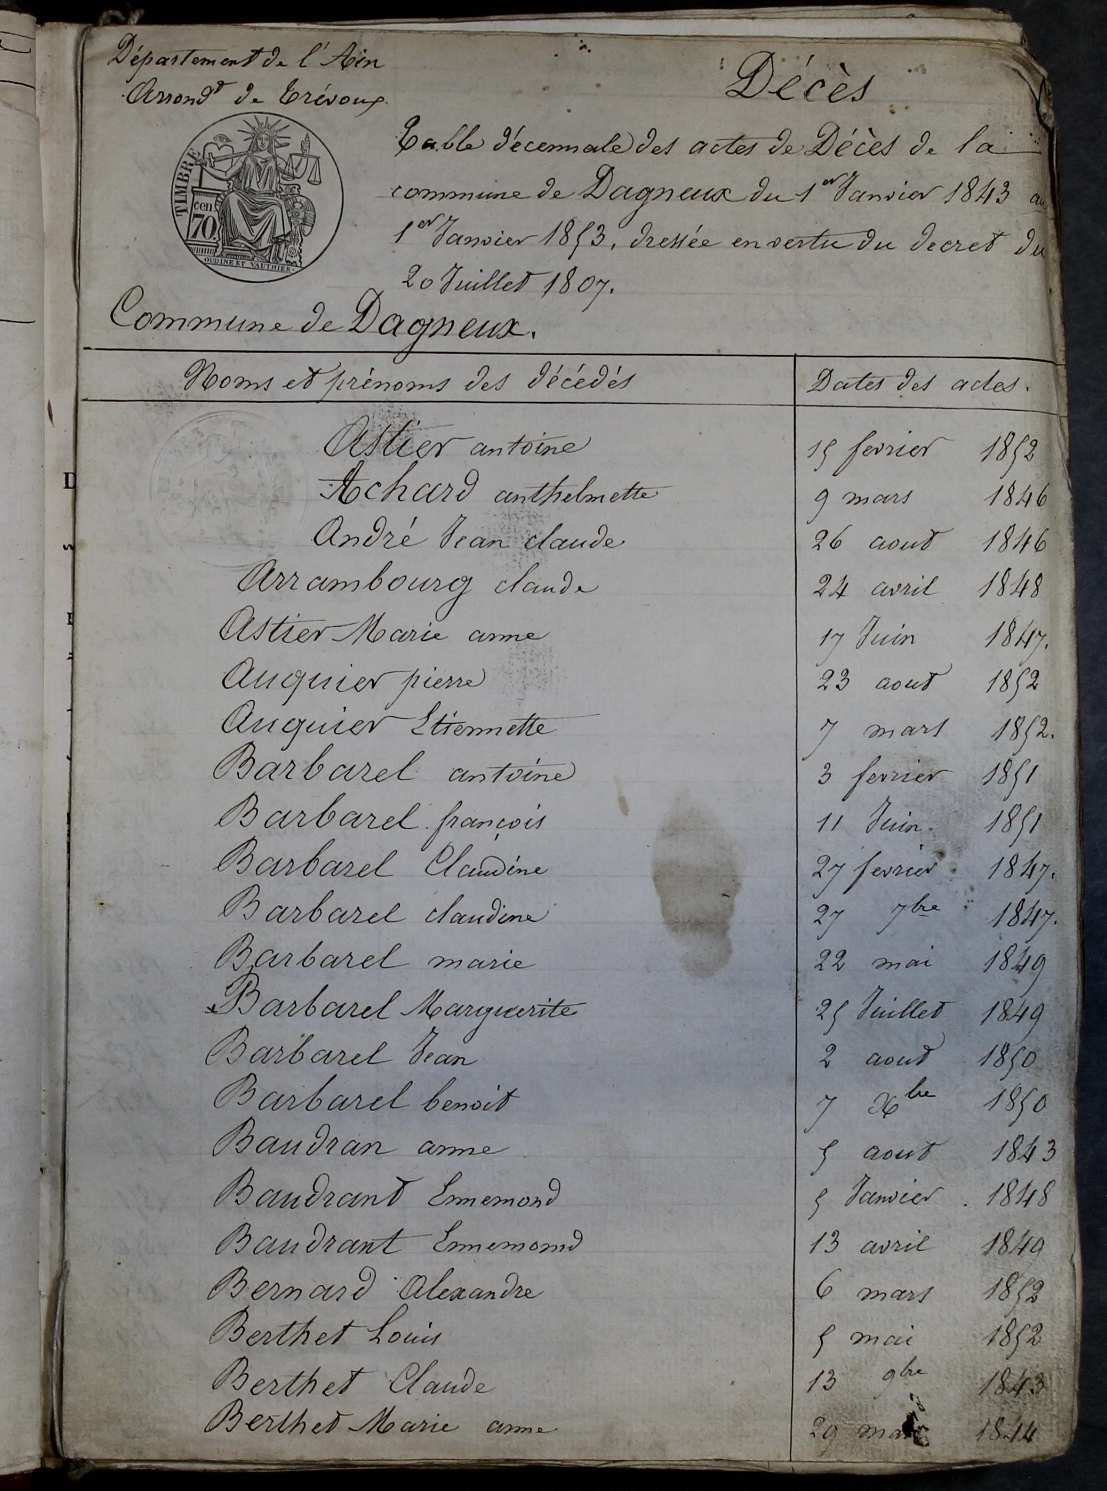 Département de l'Ain
Arrondt de Trévoux.
Décès
Table décennale des actes de Décès de la
commune de Dagneux du 1er Janvier 1843 au
1er Janvier 1853, dressée en vertu du decret du
20 Juillet 1807.
TIMBRE
70
cen
OUDINÉ ET VAUTHIER
Commune de Dagneux.
Noms et prénoms des décédés Dates des actes.
Astier antoine 15 fevrier 1852
Achard anthelmette 9 mars 1846
André Jean claude 26 aout 1846
Arrambourg claude 24 avril 1848
Astier Marie anne 17 Juin 1847.
Auquier pierre 23 aout 1852
Auquier Etiennette 7 mars 1852.
Barbarel antoine 3 fevrier 1851
Barbarel françois 11 Juin. 1851
Barbarel Claudine 27 fevrier 1847.
Barbarel claudine 27 7bre 1847.
Barbarel marie 22 mai 1849
Barbarel Marguerite 25 Juillet 1849
Barbarel Jean 2 aout 1850
Barbarel benoit 7 Xbre 1850
Baudran anne 5 aout 1843
Baudrant Ennemond 5 Janvier 1848
Baudrant Ennemond 13 avril 1849
Bernard Alexandre 6 mars 1852
Berthet Louis 5 mai 1852
Berthet Claude 13 9bre 1843
Berthet Marie anne 29 1844